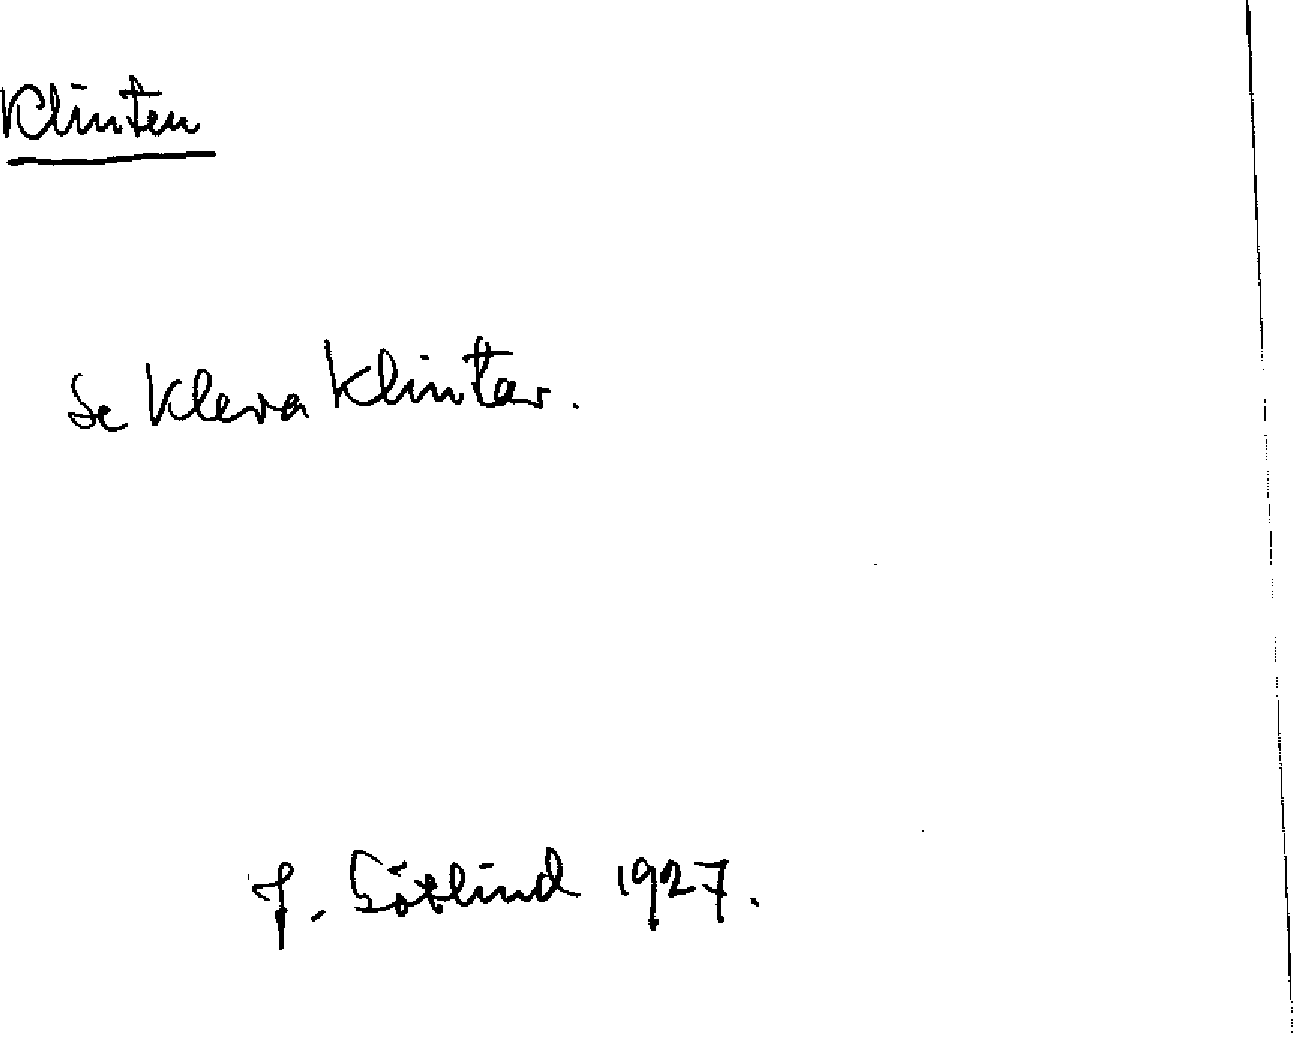 Klinten
Se Kleva Klintar.
J. Götlind 1927.